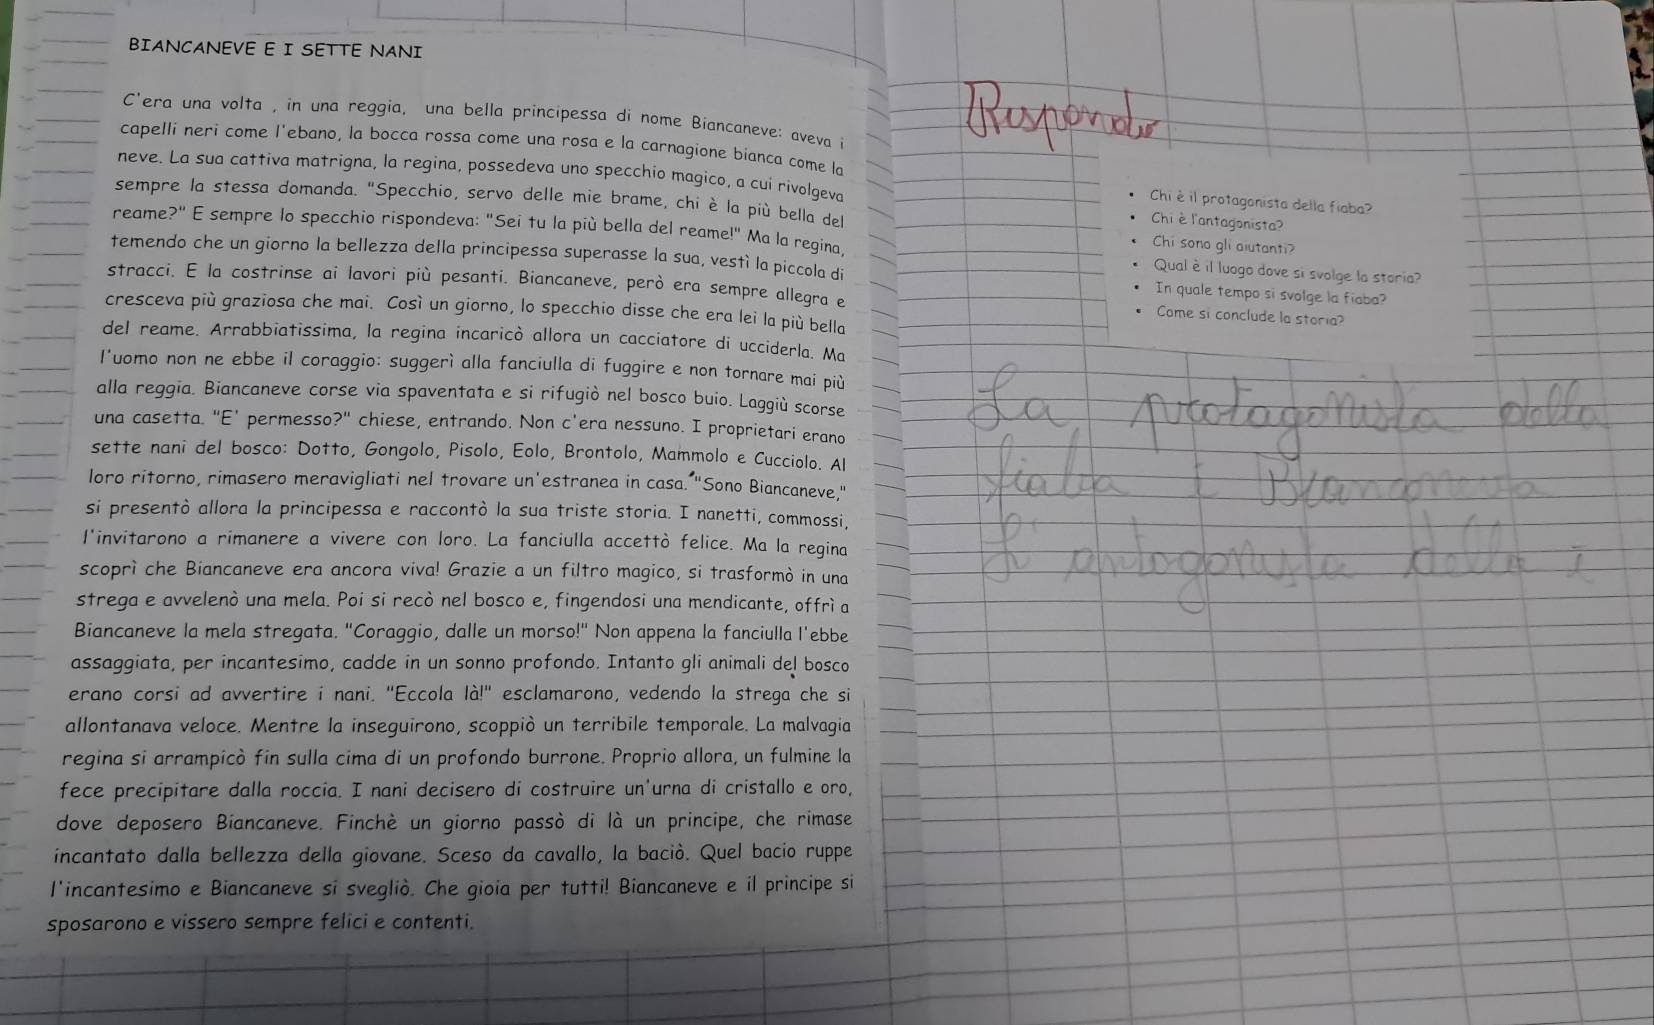 BIANCANEVE E I SETTE NANI
C'era una volta , in una reggia, una bella principessa di nome Biancaneve: aveva i
capelli neri come l'ebano, la bocca rossa come una rosa e la carnagione bianca come la
neve. La sua cattiva matrigna, la regina, possedeva uno specchio magico, a cui rivolgeva
sempre la stessa domanda. "Specchio, servo delle mie brame, chi è la più bella del
reame?" E sempre lo specchio rispondeva: "Sei tu la più bella del reame!" Ma la regina,
temendo che un giorno la bellezza della principessa superasse la sua, vestì la piccola di
stracci. E la costrinse ai lavori più pesanti. Biancaneve, però era sempre allegra e
cresceva più graziosa che mai. Così un giorno, lo specchio disse che era lei la più bella
del reame. Arrabbiatissima, la regina incaricò allora un cacciatore di ucciderla. Ma
l'uomo non ne ebbe il coraggio: suggerì alla fanciulla di fuggire e non tornare mai più
alla reggia. Biancaneve corse via spaventata e si rifugiò nel bosco buio. Laggiù scorse
una casetta. "E' permesso?" chiese, entrando. Non c'era nessuno. I proprietari erano
sette nani del bosco: Dotto, Gongolo, Pisolo, Eolo, Brontolo, Mammolo e Cucciolo. Al
loro ritorno, rimasero meravigliati nel trovare un'estranea in casa. "Sono Biancaneve,"
si presentò allora la principessa e raccontò la sua triste storia. I nanetti, commossi,
l'invitarono a rimanere a vivere con loro. La fanciulla accettò felice. Ma la regina
scoprì che Biancaneve era ancora viva! Grazie a un filtro magico, si trasformò in una
strega e avvelenò una mela. Poi si recò nel bosco e, fingendosi una mendicante, offrì a
Biancaneve la mela stregata. "Coraggio, dalle un morso!" Non appena la fanciulla l'ebbe
assaggiata, per incantesimo, cadde in un sonno profondo. Intanto gli animali del bosco
erano corsi ad avvertire i nani. "Eccola là!" esclamarono, vedendo la strega che si
allontanava veloce. Mentre la inseguirono, scoppiò un terribile temporale. La malvagia
regina si arrampicò fin sulla cima di un profondo burrone. Proprio allora, un fulmine la
fece precipitare dalla roccia. I nani decisero di costruire un'urna di cristallo e oro,
dove deposero Biancaneve. Finchè un giorno passò di là un principe, che rimase
incantato dalla bellezza della giovane. Sceso da cavallo, la baciò. Quel bacio ruppe
l'incantesimo e Biancaneve si svegliò. Che gioia per tutti! Biancaneve e il principe si
sposarono e vissero sempre felici e contenti.
• Chi è il protagonista della fiaba?
• Chi è l'antagonista?
• Chi sono gli aiutanti?
• Qual è il luogo dove si svolge la storia?
• In quale tempo si svolge la fiaba?
• Come si conclude la storia?
La protagonista della